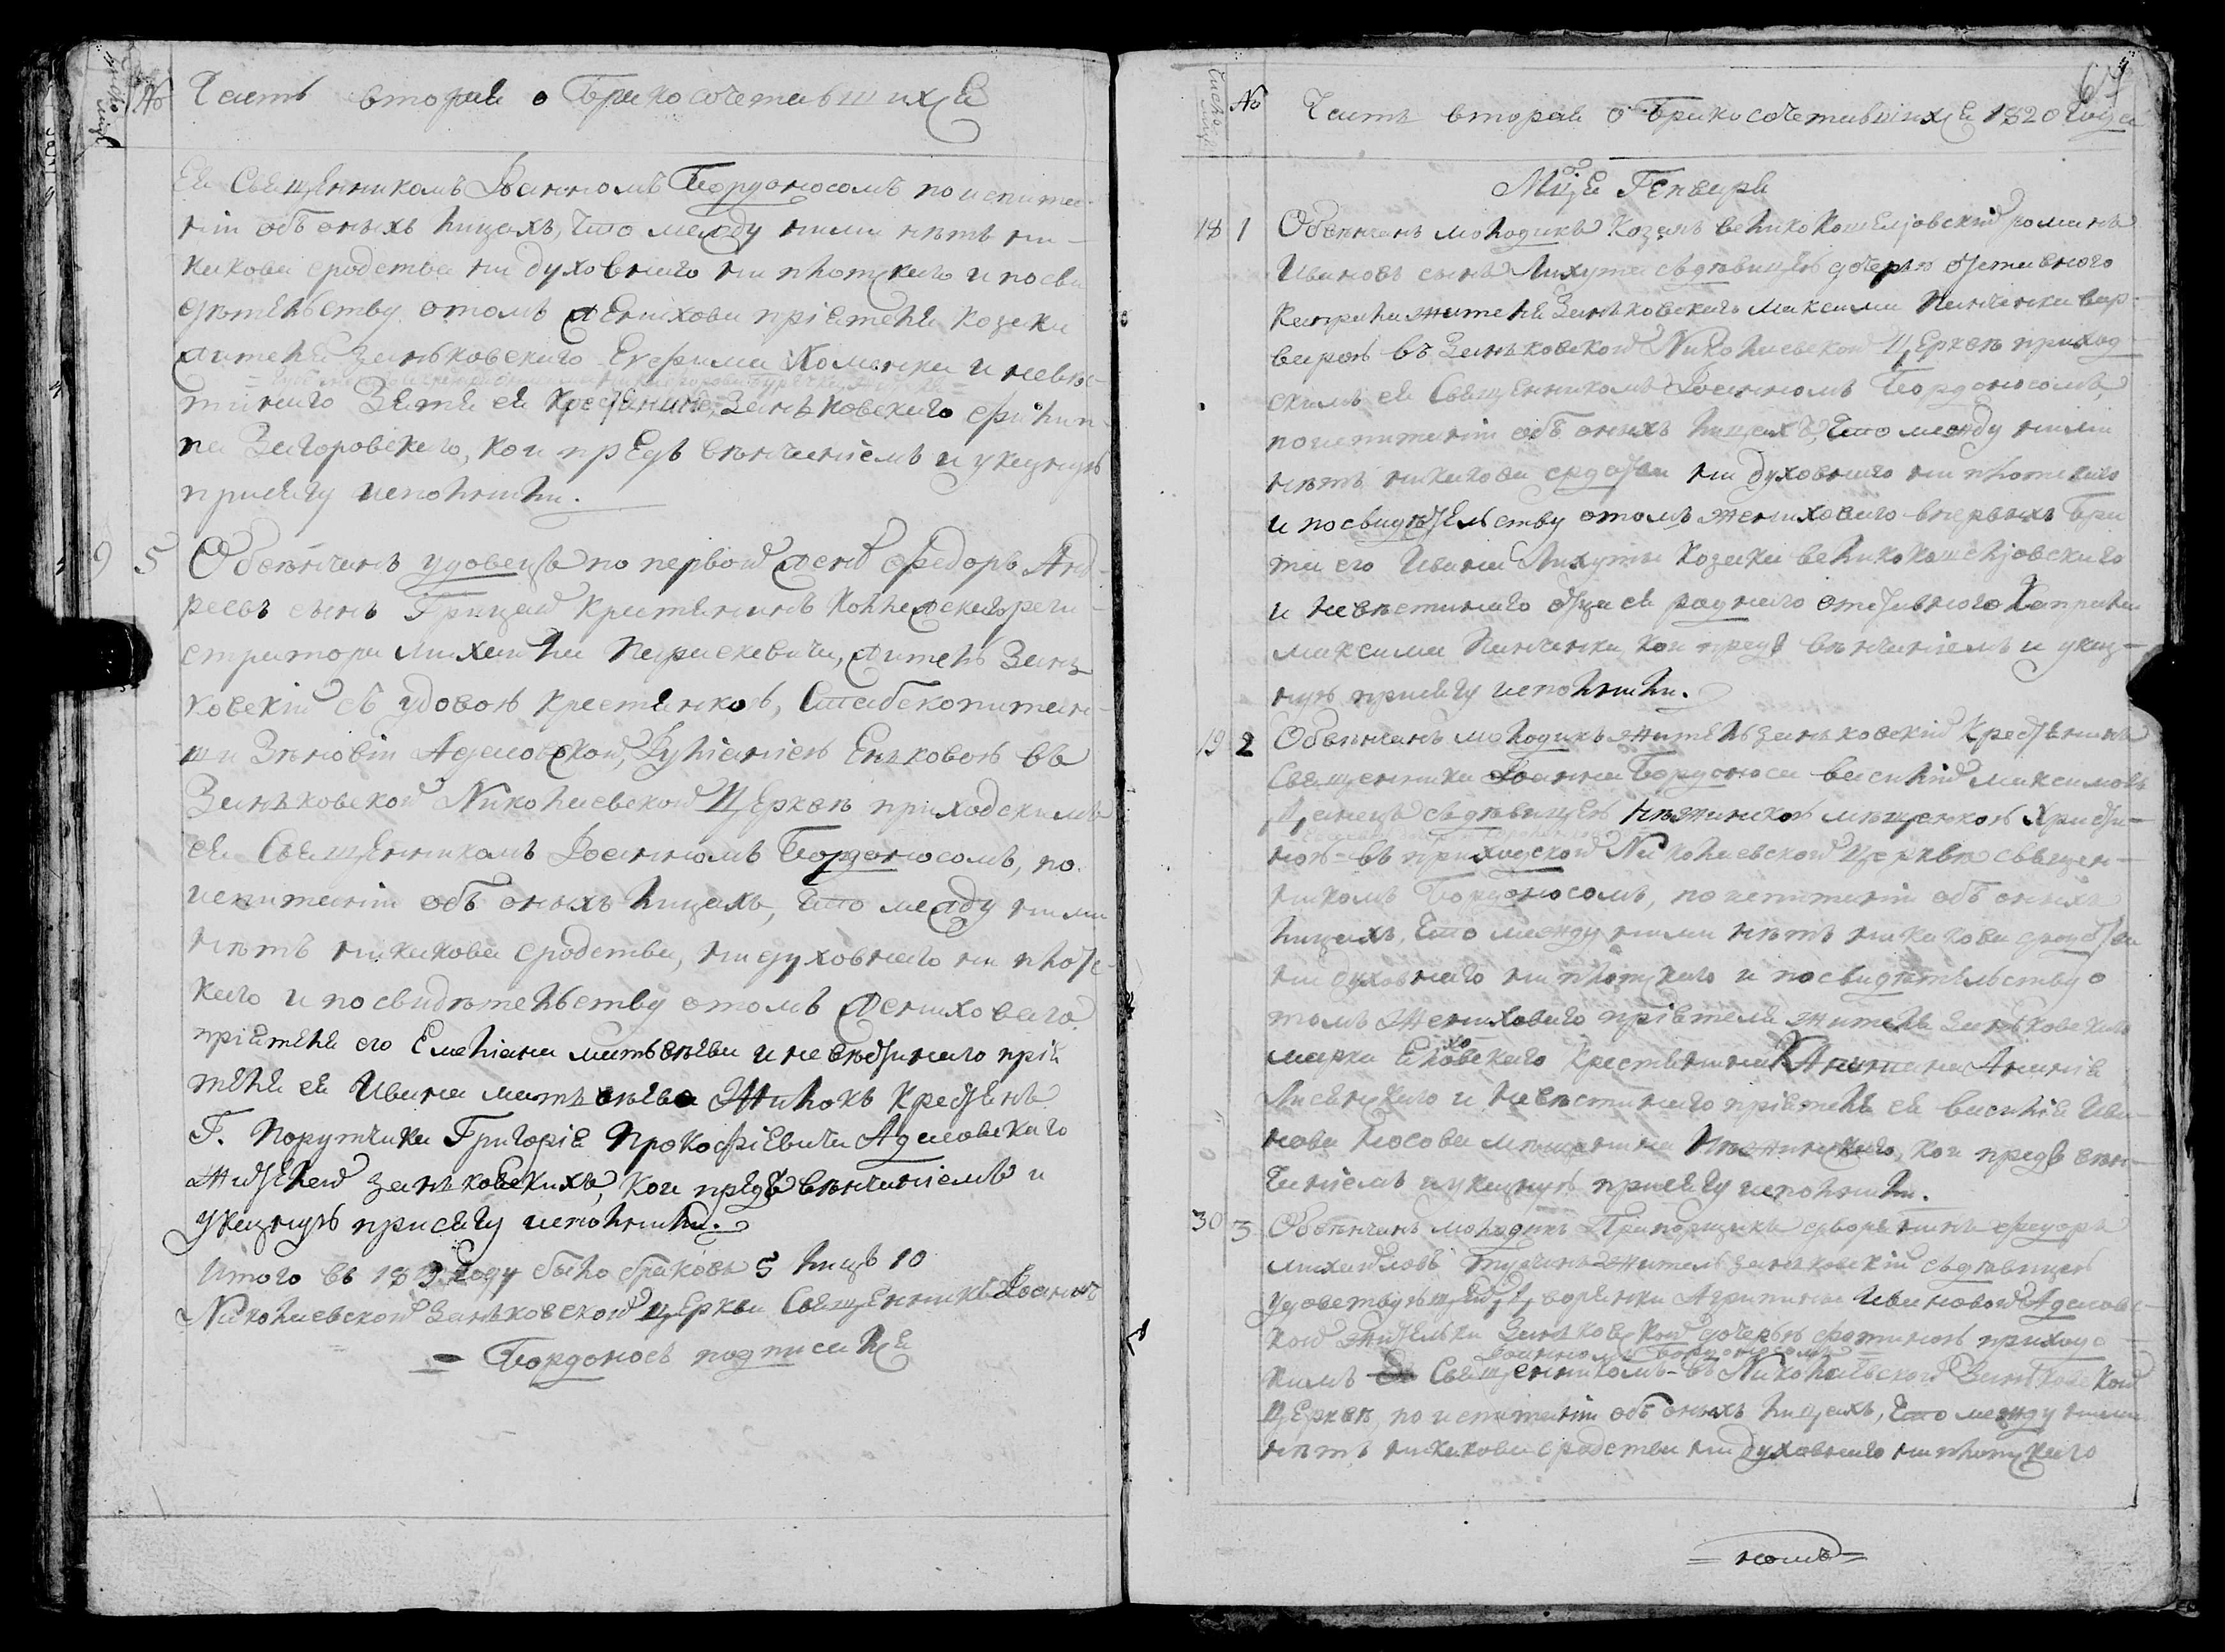 число мцъ
№
Часть вторая о Бракосочетавшихся
ея Священникомъ Іоанномъ Бордоносомъ по испита-
ніи объ оныхъ лицахъ, что между ними нѣтъ ни-
какова сродства ни духовнаго ни плотскаго и по сви
дѣтельству о томъ женихова пріятеля козака
жителя Заньковскаго Ефрима Хоменка и невѣс-
тинаго Зятя ея Крестянина, Заньковскаго Филип-
па Загоровскаго, кои предъ вѣнчаніемъ и указную
присягу исполнили.
9 5 Обвѣнчанъ удовецъ по первой женѣ Федоръ Анд-
реевъ сынъ Грицай крестянинъ коллежскаго реги-
стратора Михаила Параскевича, житель Зань
ковскій съ удовою крестянкою, Штабскапитан-
ши Зѣновіи Адасовской, Іуліаніею Еньковою въ
Заньковской Николаевской Церквѣ приходскимъ
ея Священникомъ Іоанномъ Бордоносомъ, по
испитаніи объ оныхъ лицахъ, что между ними
нѣтъ никакова сродства, ни духовнаго ни плотс-
каго и по свидѣтельству о томъ женихового
пріятеля его Емеліана Матвѣева и невѣстинаго прія
теля ея Ивана Матвѣева Жилокъ крестянъ
Г. Поручика Григорія Прокофіевича Адасовскаго
жителей Заньковскихъ, кои предъ вѣнчаніемъ и
указную присягу исполнили.
Итого въ 1819 году было браковъ 5 лицъ 10
Николаевской Заньковской церкви Священникъ Іоаннъ
= Бордоносъ подписался
67
Число мцъ
№
Часть вторая о Бракосочетавшихся 1820 года
Мцъа Генваря
18 1 Обвѣнчанъ молодикъ Козакъ великокошелювскій Романъ
Ивановъ сынъ Лихута съ дѣвицею дочерью отставного
капрала жителя Заньковскаго Максима Панченка вар-
варою въ Заньковской Николаевской Церквѣ приход-
скимъ ея Священникомъ Іоанномъ Бордоносомъ,
по испитаніи объ оныхъ лицахъ, что между ними
нѣтъ никакова срдства ни духовнаго ни плотскаго
и по свидѣтельству о томъ женихового вперьвыхъ бра
та его Ивана Лихуты козака великокошелювскаго
и невѣстинаго отца ея роднаго отставного Капрала
Максима Панченка, кои предъ вѣнчаніемъ и указ-
ную присягу исполнили.
19 2 Обвѣнчанъ молодикъ житель заньковскій Крестянинъ
Священника Іоанна Бордоноса Василій Максимовъ
съ дѣвицею Нѣжинскою мѣщенкою Христи-
ною въ приходской Николаевской церквѣ священ-
никомъ Бордоносомъ, по испитаніи объ оныхъ
лицахъ, что между ними нѣтъ никакова сродства
ни духовнаго ни плотскаго и по свидѣтельству о
томъ женихового пріятеля жителя заньковскаго
Марка Крестянина Ананія
Лисенскаго и невѣстинаго пріятеля ея Василія Ива-
нова Носова мѣщанина Нѣжинскаго, кои предъ вѣн-
чаніемъ и указную присягу исполнили.
30 3 Обвѣнчанъ молодикъ Прапорщикъ дворянинъ Федоръ
Михайловъ житель заньковскій съ дѣвицею
Дворянки Агрипины Ивановой Адасовс-
кой жительки Заньковской дочерью Фотиною приходс-
Іоанномъ Бордоносомъ
кимъ Священникомъ въ Николаевской Заньковской
Церквѣ, по испитаніи объ оныхъ лицахъ, что между ними
нѣтъ никакова сродства ни духовнаго ни плотскаго